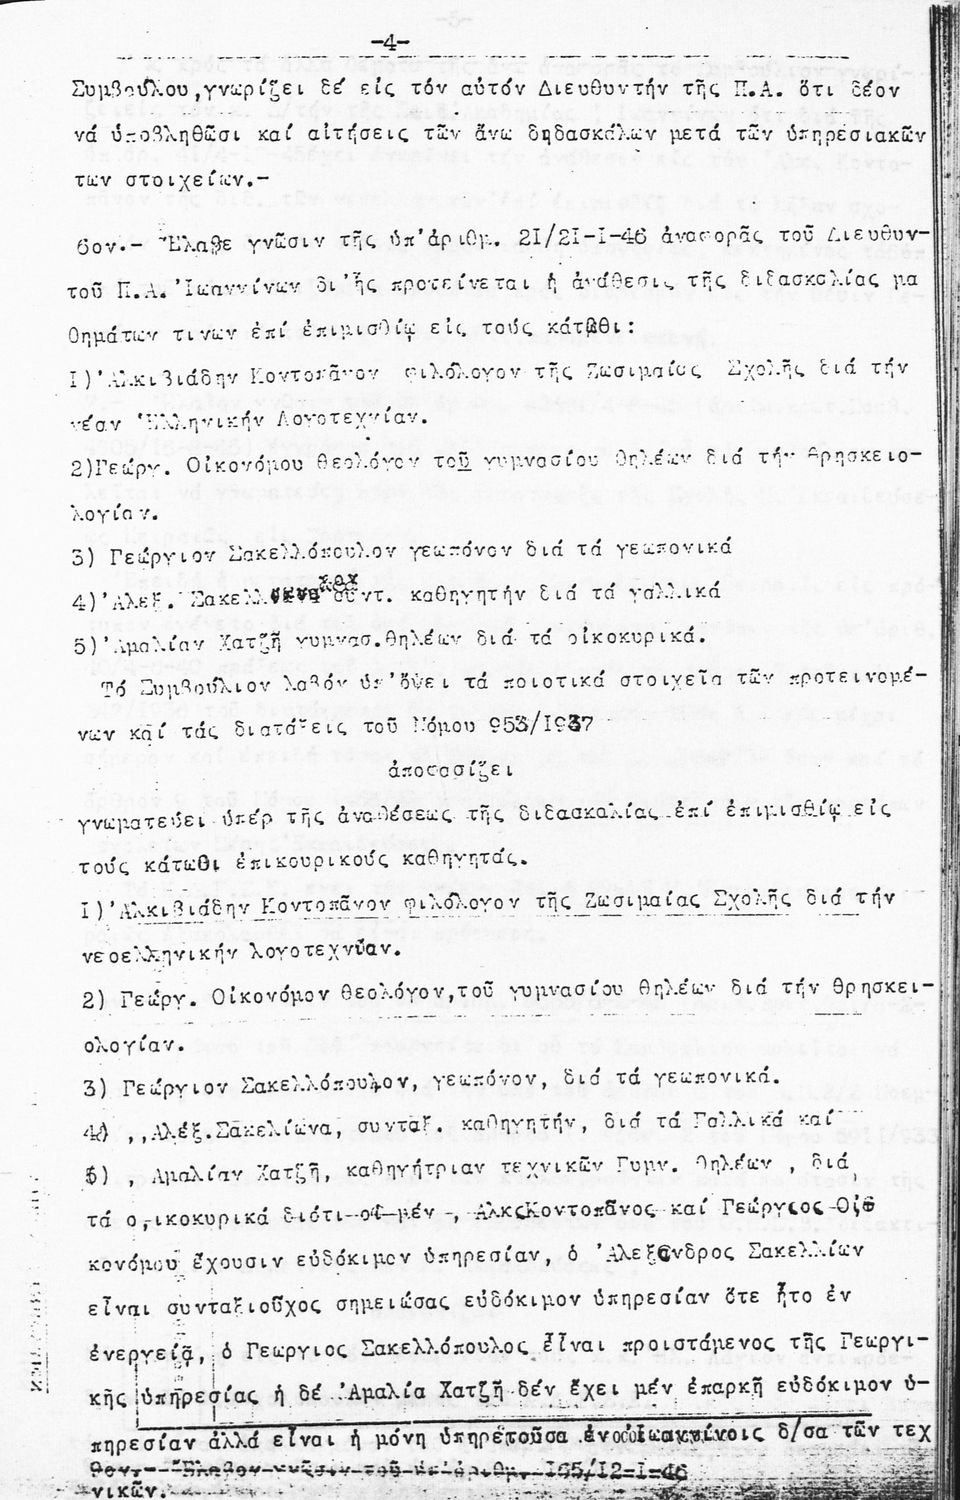 -4-
Συμβουλίου,γνωρίζει δέ είς τόν αὐτόν Διευθυντήν τῆς Π.Α. ὅτι δέον
νά ὑποβληθῶσι καί αἰτήσεις τῶν ἄνω δηδασκάλων μετά τῶν ὑπηρεσιακῶν
των στοιχείων.-
6ον.- Ἔλαβε γνῶσιν τῆς ὑπ'ἀριθμ. 21/21-1-46 ἀναφορᾶς τοῦ Διευθυν-
τοῦ Π.Α.Ἰωαννίνων δι'ἧς προτείνεται ἡ ἀνάθεσις τῆς διδασκαλίας μα
θημάτων τινων ἐπί ἐπιμισθίῳ εἰς τούς κάτωθι:
Ι)Ἀλκιβιάδην Κοντοπᾶνον φιλόλογον τῆς Ζωσιμαίας Σχολῆς διά τήν
νέαν Ἑλληνικήν Λογοτεχνίαν.
2)Γεώργ. Οἰκονόμου θεολόγον τοῦ γυμνασίου θηλέων διά τήν θρησκειο-
λογίαν.
3) Γεώργιον Σακελλόπουλον γεωπόνον διά τά γεωπονικά
4)Ἀλεξ. Σακελλ συντ. καθηγητήν διά τά γαλλικά
5)Ἀμαλίαν Χατζῆ γυμνασ.θηλέων διά τά οἰκοκυρικά.
Τό Συμβούλιον λαβόν ὑπ'ὄψει τά ποιοτικά στοιχεῖα τῶν προτεινομέ-
νων καί τάς διατάξεις τοῦ Νόμου 953/1937
ἀποφασίζει
γνωματεύει ὑπέρ τῆς ἀναθέσεως τῆς διδασκαλίας ἐπί ἐπιμισθίῳ εἰς
τούς κάτωθι ἐπικουρικούς καθηγητάς.
Ι)Ἀλκιβιάδην Κοντοπᾶνον φιλόλογον τῆς Ζωσιμαίας Σχολῆς διά τήν
νεοελληνικήν λογοτεχνίαν.
2) Γεώργ. Οἰκονόμον θεολόγον,τοῦ γυμνασίου θηλέων διά τήν θρησκει-
ολογίαν.
3) Γεώργιον Σακελλόπουλον, γεωπόνον, διά τά γεωπονικά.
4) ,,Ἀλέξ.Σακελίωνα, συνταξ. καθηγητήν, διά τά Γαλλικά καί
5) , Ἀμαλίαν Χατζῆ, καθηγήτριαν τεχνικῶν Γυμν. θηλέων , διά
τά οἰκοκυρικά διότι οἱ μέν , ΑλκςΚοντοπᾶνος καί Γεώργιος Οἰ
κονόμου ἔχουσιν εὐδόκιμον ὑπηρεσίαν, ὁ Ἀλεξανδρος Σακελλίων
εἶναι συνταξιοῦχος σημειώσας εὐδόκιμον ὑπηρεσίαν ὅτε ἦτο ἐν
ἐνεργείᾳ, ὁ Γεωργιος Σακελλόπουλος εἶναι προιστάμενος τῆς Γεωργι-
κῆς ὑπηρεσίας ἡ δέ Ἀμαλία Χατζῆ δέν ἔχει μέν ἐπαρκῆ εὐδόκιμον ὑ-
πηρεσίαν ἀλλά εἶναι ἡ μόνη ὑπηρετοῦσα ἐν Ἰωαννίνοις δ/σα τῶν τεχ
Ἔλαβον γνῶσιν τοῦ ὑπ'ἀριθμ. 165/12-1-46
νικῶν.